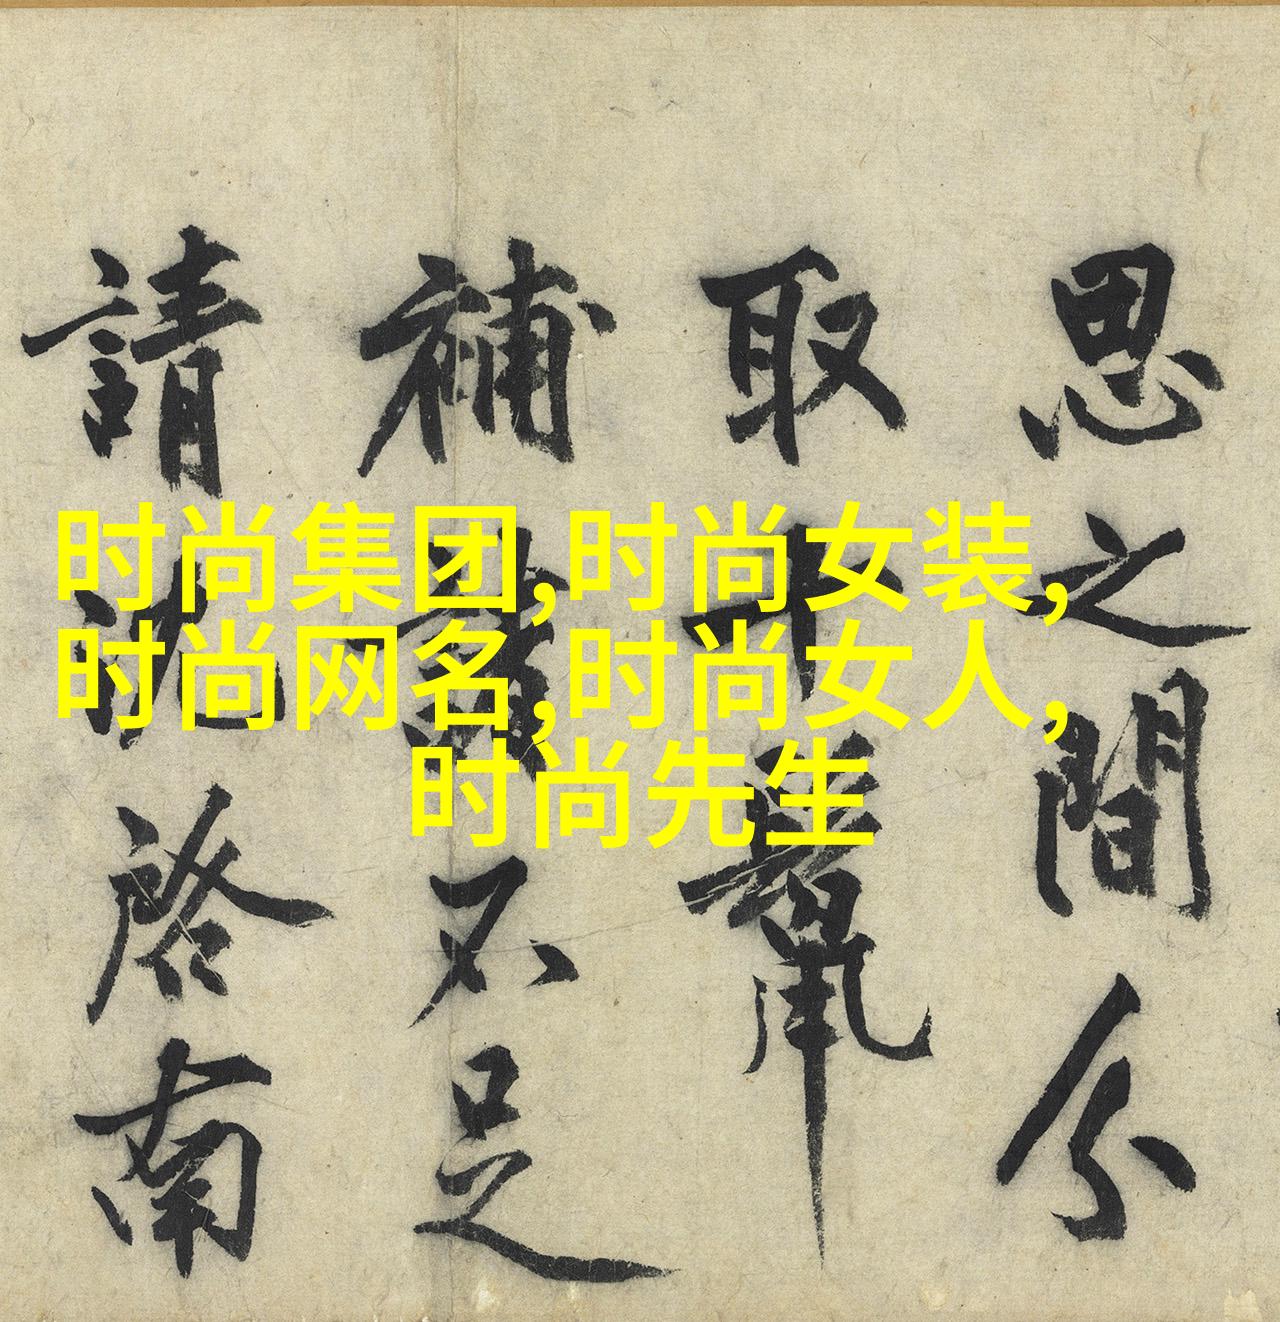 思之間分
取十
補
不足
請
啓南
时尚集团,时尚女装,
时尚网名,时尚女人,
时尚先生